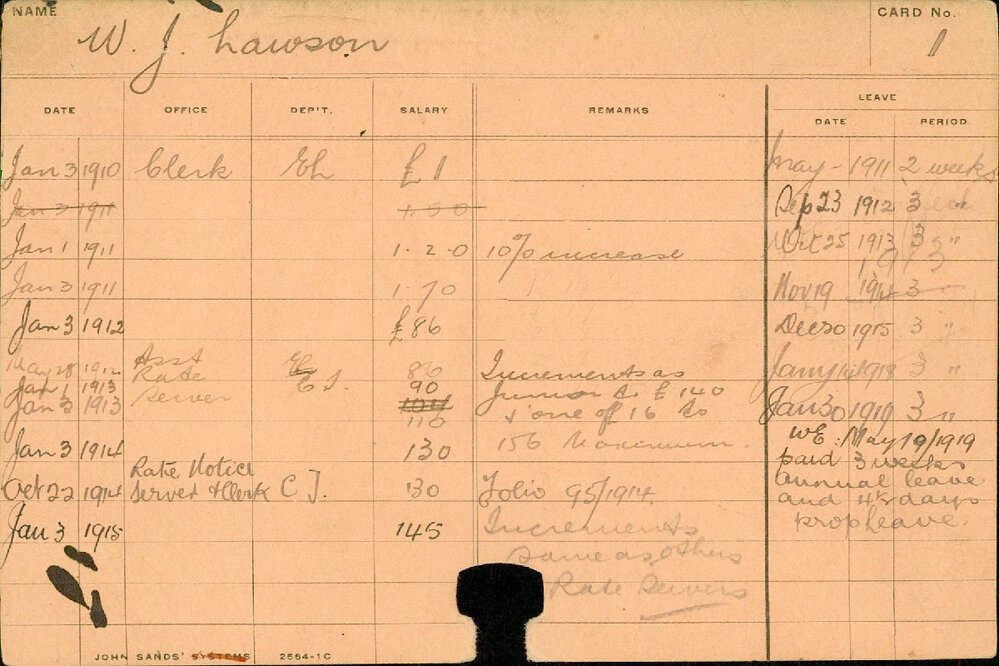 NAME
W. J. Lawson
CARD No.
1
DATE OFFICE DEP'T. SALARY REMARKS LEAVE
DATE PERIOD
Jan 3 1910 Clerk Eh £1 May - 1911 2 weeks
Jan 3 1911 1.50 Sep 23 1912 3
Jan 1 1911 1. 2. 0 10% increase Oct 25 1913 3 "
1913
Jan 3 1911 1. 7 0 Nov 19 1914 3
Jan 3 1912 £86 Dec 30 1915 3 "
May 28 1912 Asst Eh 86 Increments as 1918 3 "
Jan 1 1913 Rate C J. 90 Junior to £140
Jan 3 1913 Server 104 & one of 16 to Jan 30 1919 3 "
110
Jan 3 1914 130 156 Maximum. WE: May 19/1919
paid 3 weeks
Rate Notice annual leave
Oct 22 1914 Server & Clerk C J. 130 Folio 95/1914. and 4½ days
prop leave.
Jan 3 1915 145 Increments
same as others
Rate Servers
JOHN SANDS' SYSTEMS 2564-1C